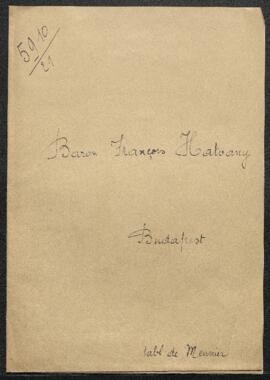 5910/21
Baron François Hatvany
Budapest
tabl. de Meunier